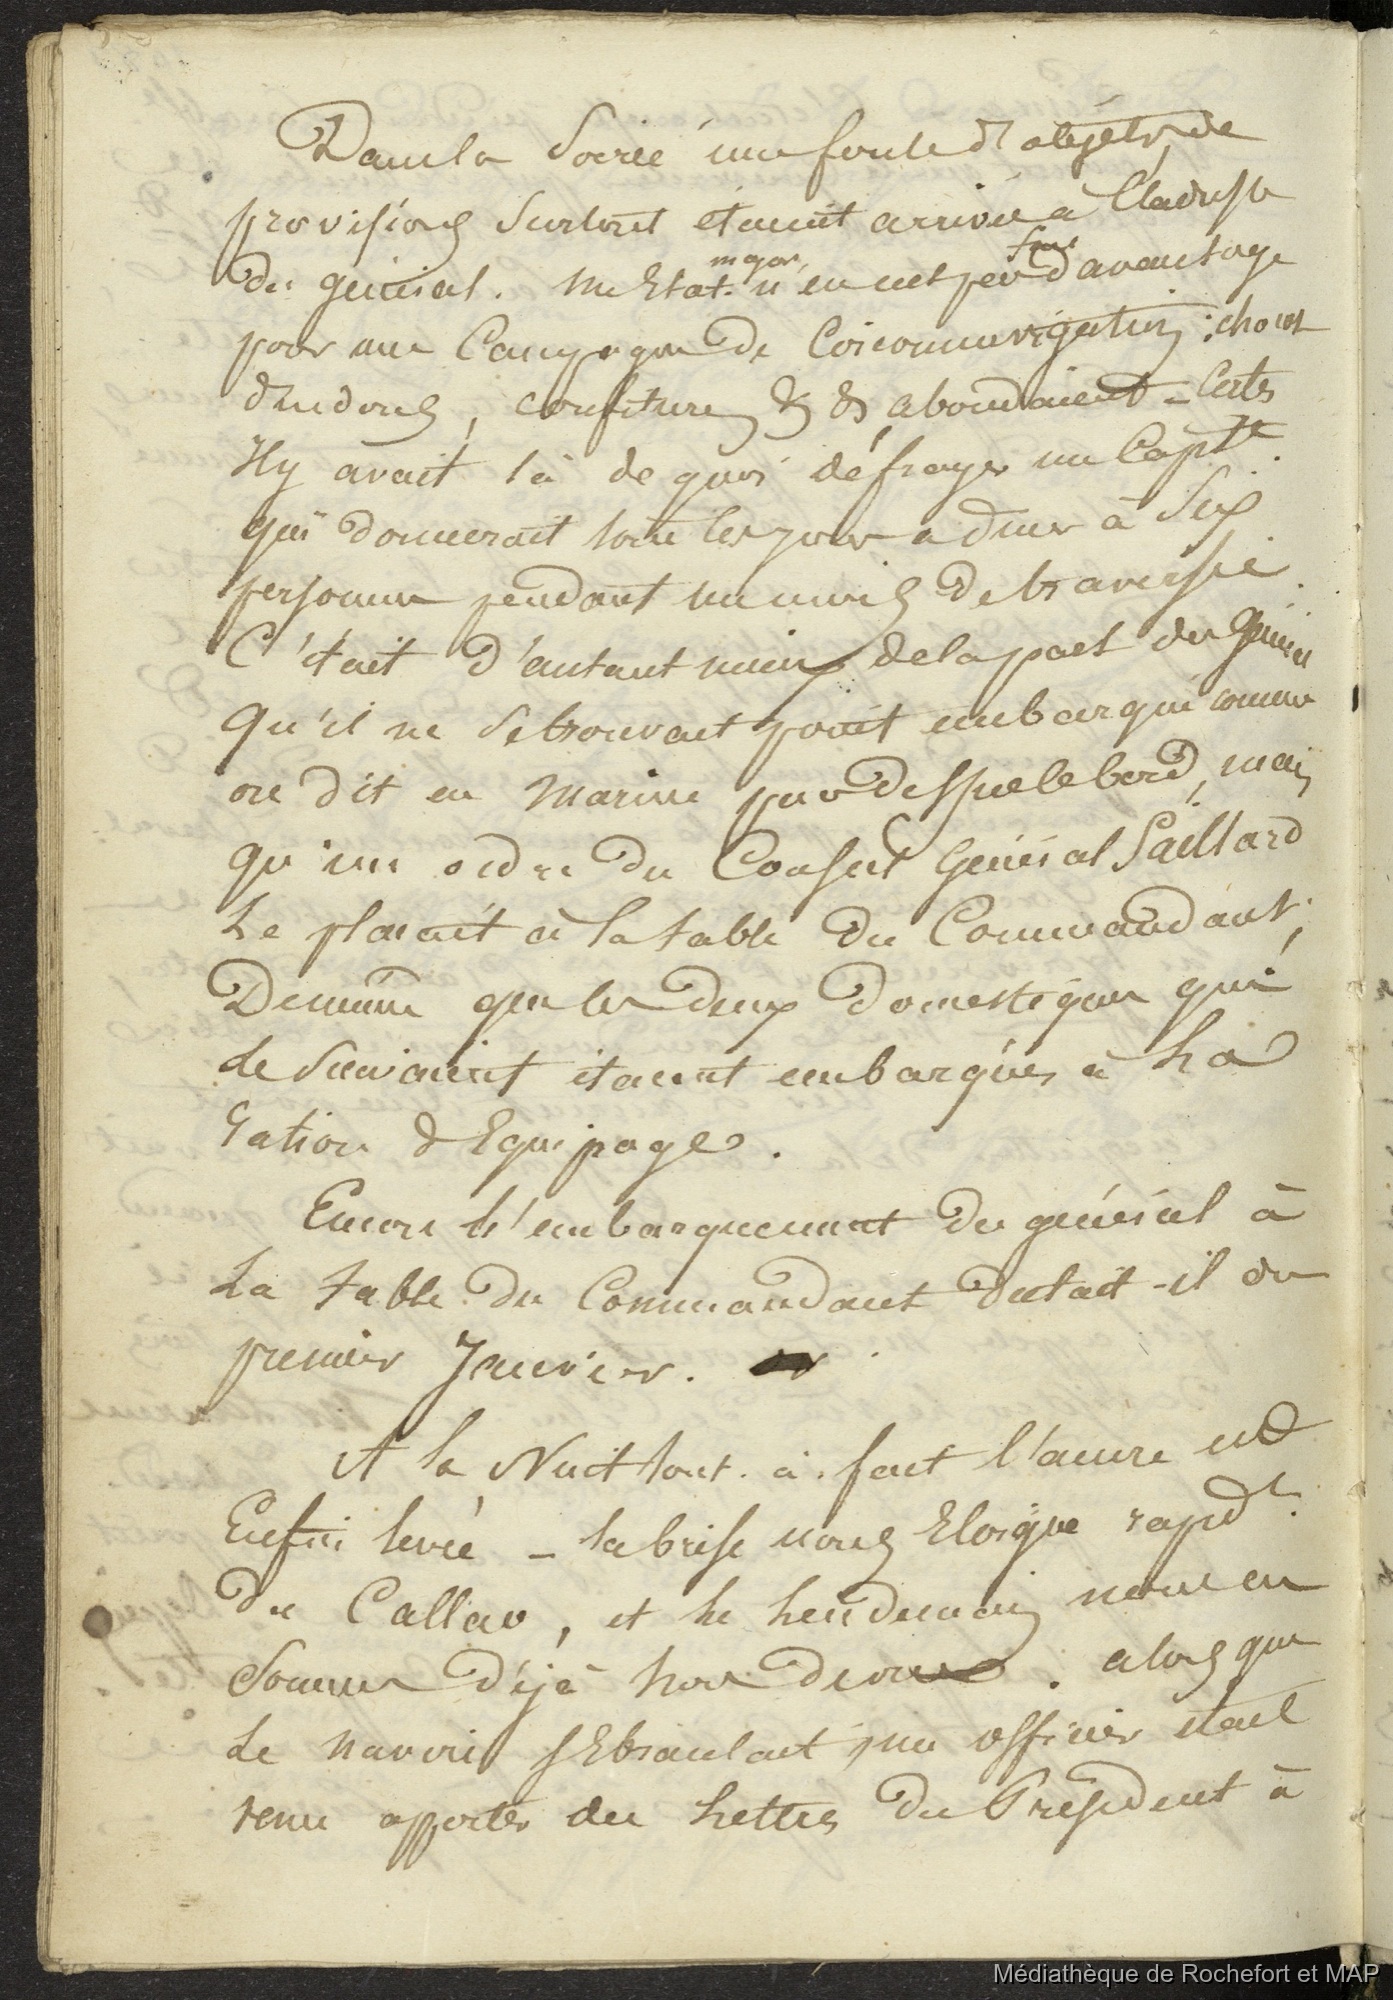 Dans la Soirée une foule d'objets, de
provisions surtout étaient arrivée à l'adresse
du général. Un Etat-major n'en eut pas fait d'avantage
pour une Campagne de Circonnavigation :
dindons, confitures & & abondaient - Certes
Il y avait là de quoi défrayer un Capt.e
qui donnerait tous les jours a diner à Six
personnes pendant un mois de traversée.
C'était d'autant mieux de la part du Général
Qu'il ne se trouvait point embarqué comme
on dit en Marine par dessus le bord, mais
qu'un ordre du Consul Général Saillard
Le plaçait à la table du Commandant;
De même que les deux domestiques qui
le suivaient étaient embarqués à La
ration d'Equipage.
Encore l'embarquement du général à
La table du Commandant datait-il du
premier Janvier.
A la Nuit tout-à-fait l'ancre est
Enfin levée - la brise nous Eloigne rapid.t
du Callao, et le lendemain nous en
Sommes déjà hors de vue. alors que
Le navire s'Ebranlait, un officier était
venu apporter des lettres du Président à
Médiathèque de Rochefort et MAP